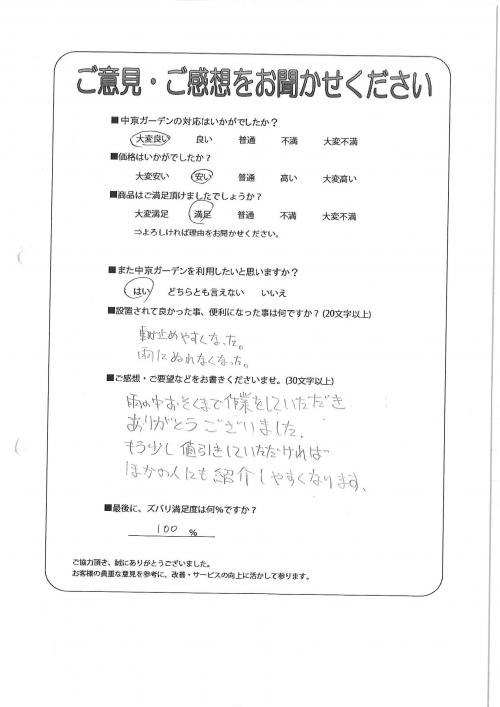 ご意見・ご感想をお聞かせください
■中京ガーデンの対応はいかがでしたか？
大変良い 良い 普通 不満 大変不満
■価格はいかがでしたか？
大変安い 安い 普通 高い 大変高い
■商品はご満足頂けましたでしょうか？
大変満足 満足 普通 不満 大変不満
⇒よろしければ理由をお聞かせください。
■また中京ガーデンを利用したいと思いますか？
はい どちらとも言えない いいえ
■設置されて良かった事、便利になった事は何ですか？(20文字以上)
車が止めやすくなった。
雨にぬれなくなった。
■ご感想・ご要望などをお書きくださいませ。(30文字以上)
雨の中おそくまで作業をしていただき
ありがとうございました.
もう少し値引きしていただければ
ほかの人にも紹介しやすくなります、
■最後に、ズバリ満足度は何％ですか？
100 %
ご協力頂き、誠にありがとうございました。
お客様の貴重な意見を参考に、改善・サービスの向上に活かして参ります。